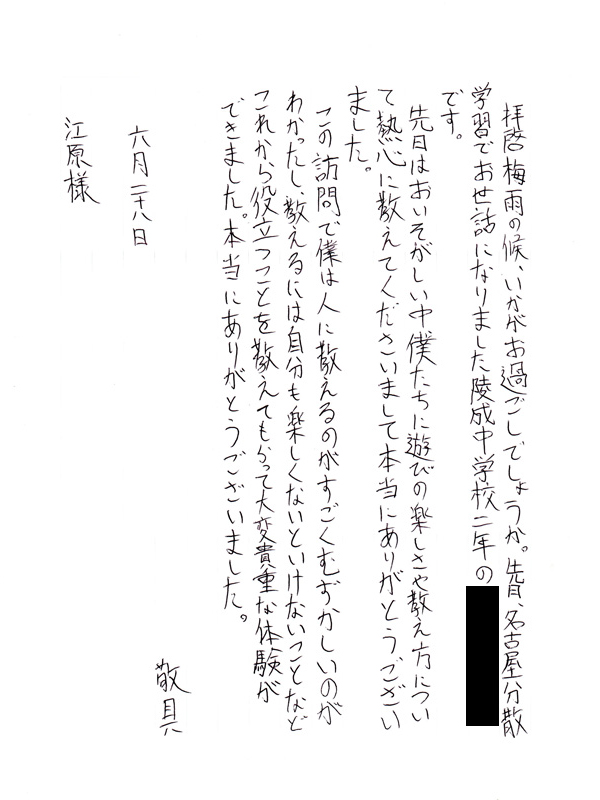 拝啓 梅雨の候、いかがお過ごしでしょうか。先日、名古屋分散
学習でお世話になりました陵成中学校二年の
です。
先日はおいそがしい中僕たちに遊びの楽しさや教え方につい
て熱心に教えてくださいまして本当にありがとうござい
ました。
この訪問で僕は人に教えるのがすごくむずかしいのが
わかったし、教えるには自分も楽しくないといけないことなど
これから役立つことを教えてもらって大変貴重な体験が
できました。本当にありがとうございました。
敬具
六月二十八日
江原様